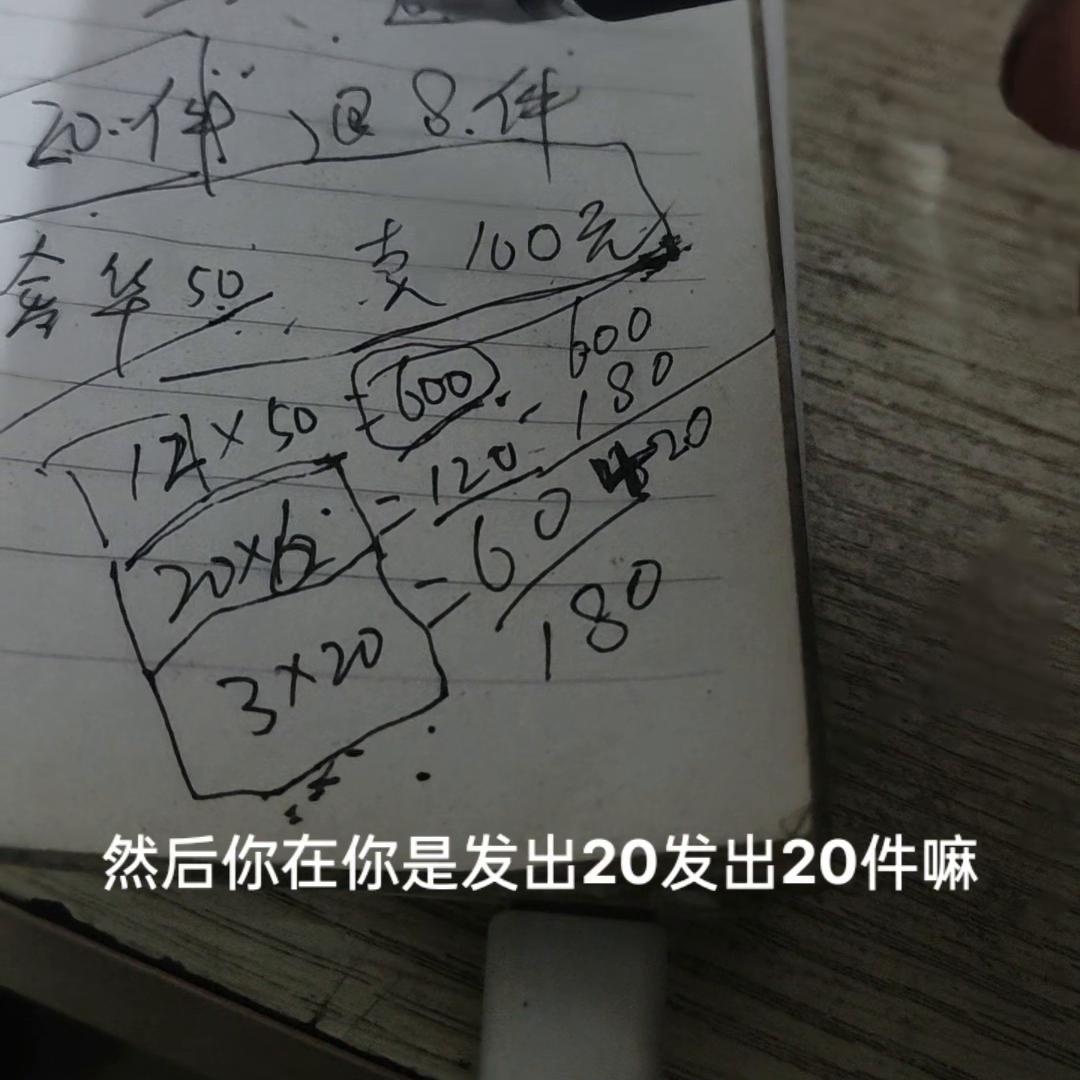 20件 @ 8件
奢华50 卖 100元
12×50 =600 600
180
20×6 =120 420
3×20 =60
180
然后你在你是发出20发出20件嘛